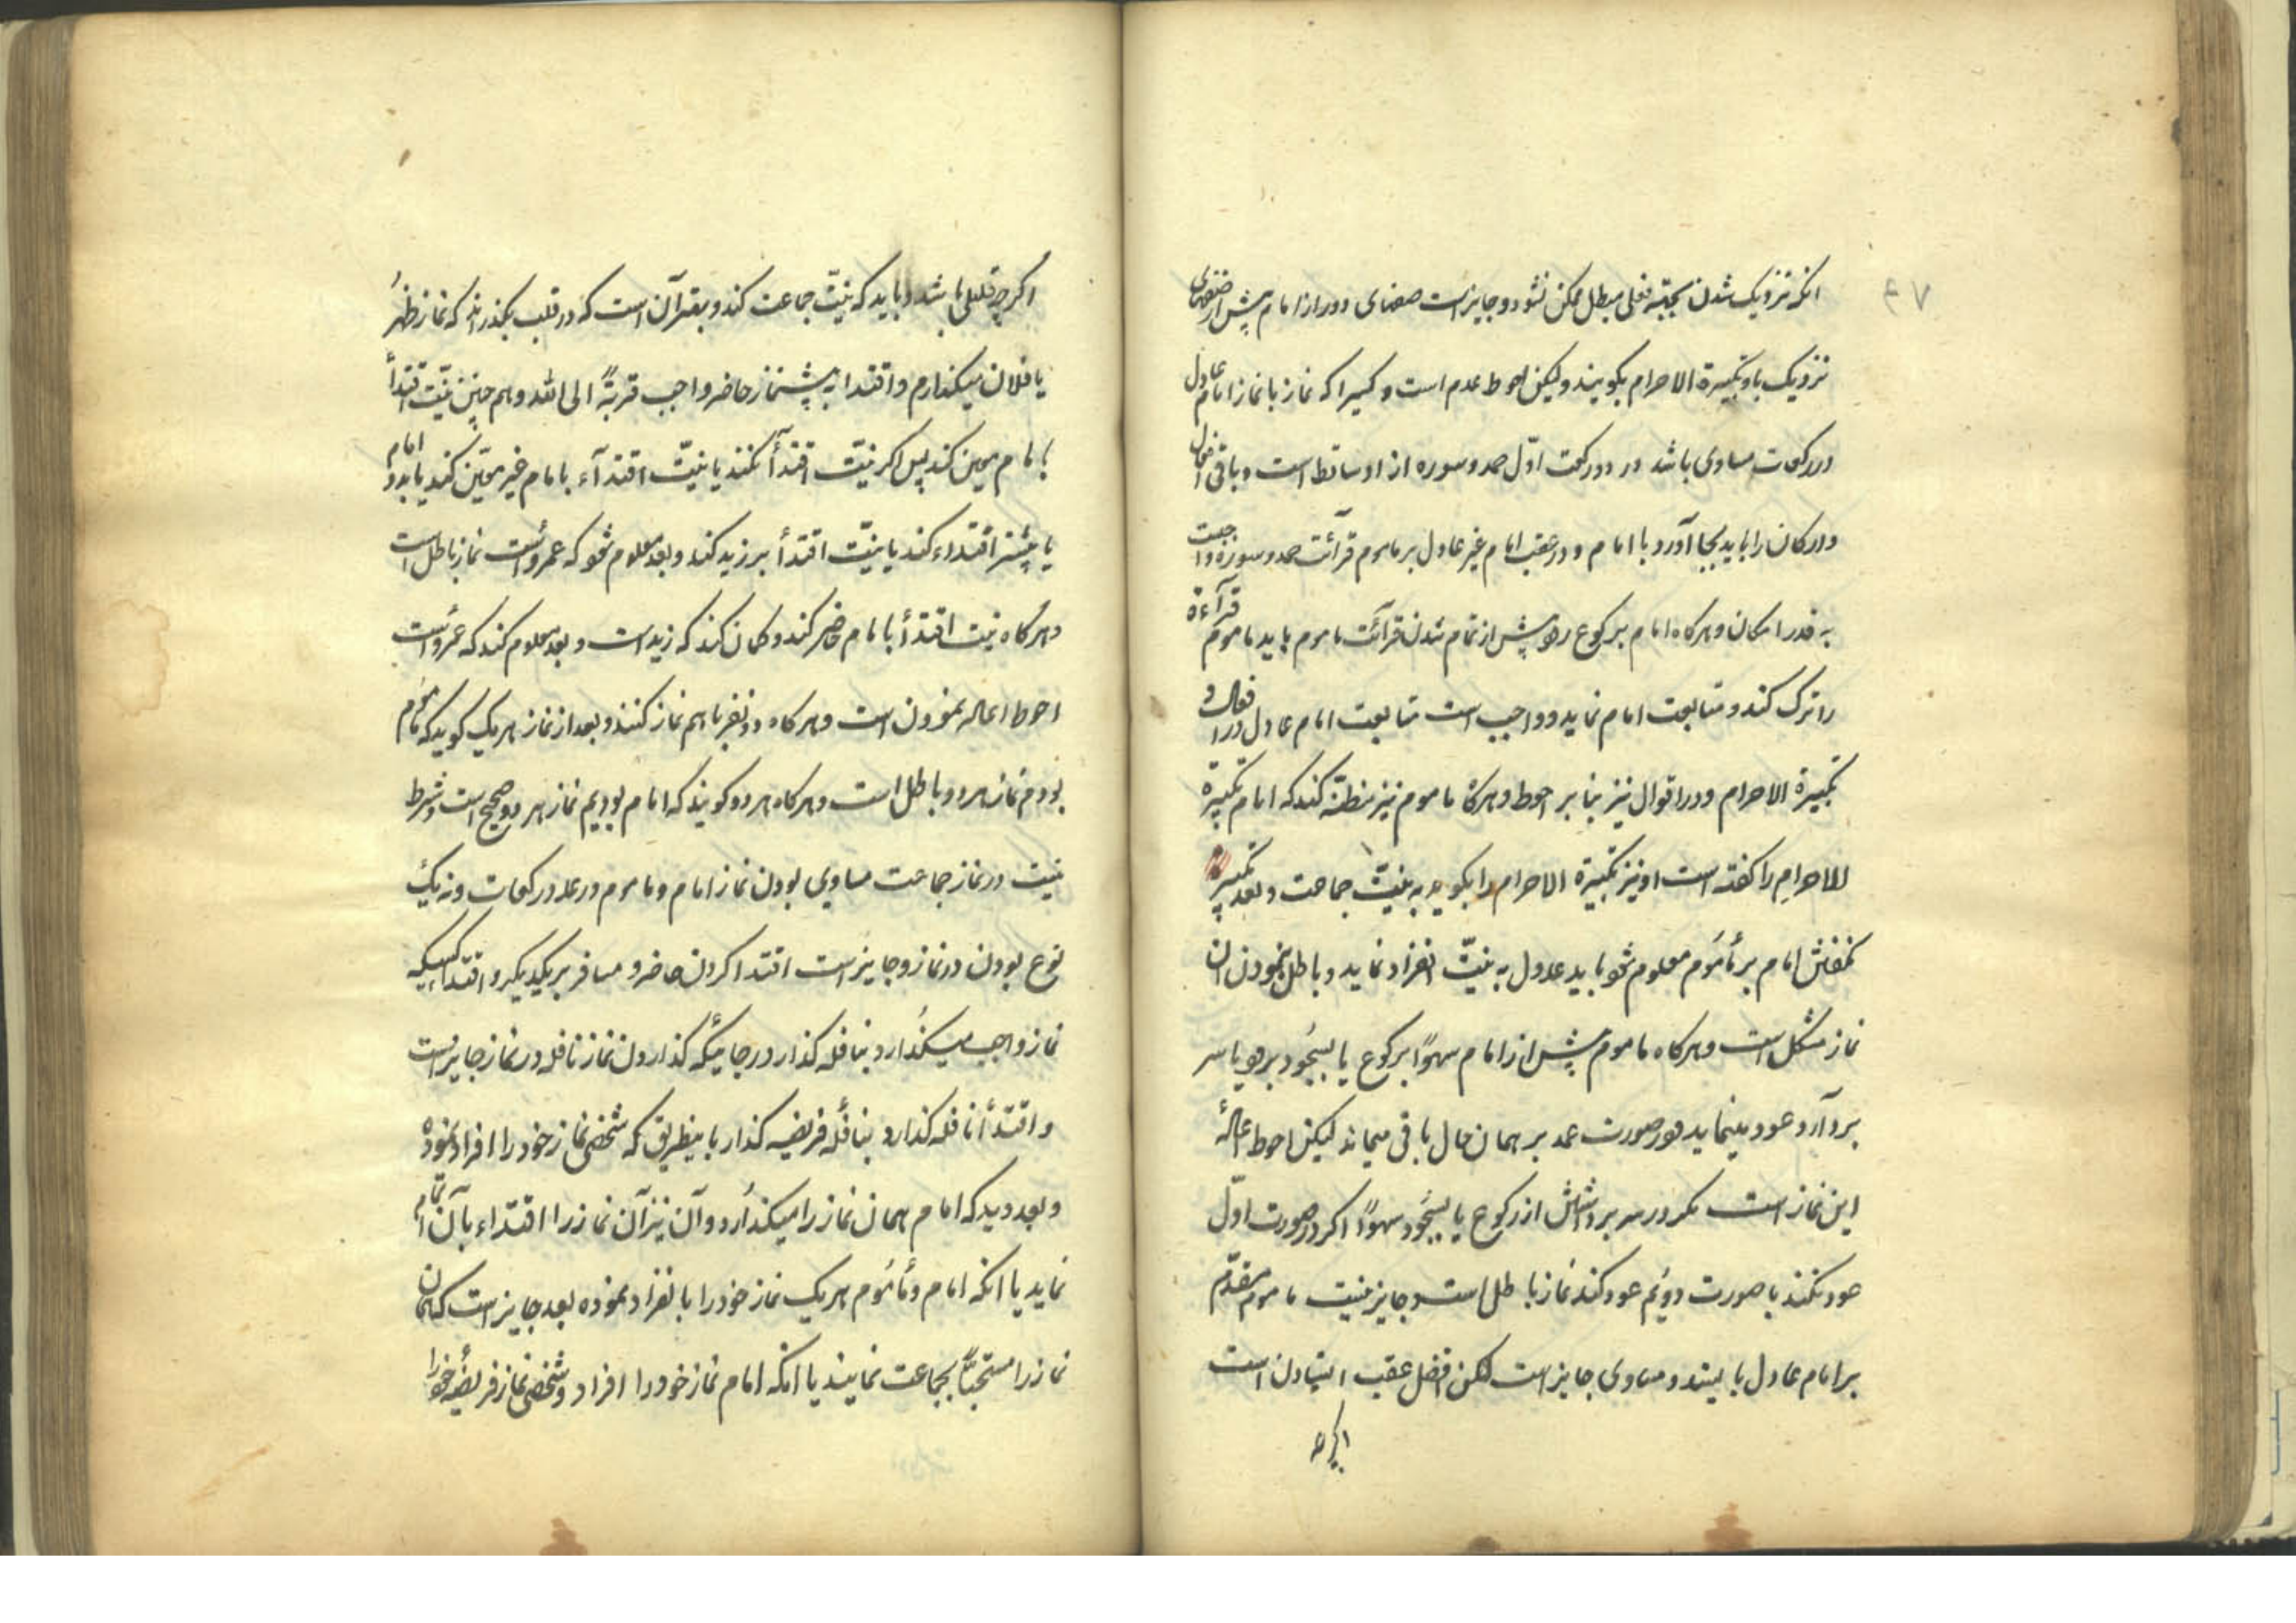 ۴۷
انکه نزدیک شدن بجهة فعلی مبطل ممکن نشود و جایز است صفهای دور از امام پیش از صفهای
نزدیک باو تکبیرة الاحرام بکویند و لیکن احوط عدم است و کسیرا که نماز با نماز امام عادل
در رکعات مساوی باشد در دو رکعت اوّل حمد و سوره از او ساقط است و باقی افعال
و ارکان را باید بجا آورد با امام و در عقب امام غیر عادل بر ماموم قرآئت حمد و سوره واجبست
به قدر امکان و هرکاه امام برکوع رود پیش از تمام شدن قرآئت ماموم باید ماموم قرآءة
را ترک کند و متابعت امام نماید و واجب است متابعت امام عادل در افعال و
تکبیرة الاحرام و در اقوال نیز بنا بر احوط و هرکاه ماموم نیز مظنّه کند که امام تکبیرة
الاحرام را کفته است او نیز تکبیرة الاحرام را بکوید به نیّت جماعت و بعد تکبیر
نکفتن امام بر مأموم معلوم شود باید عدول به نیّت انفراد نماید و باطل نمودن ان
نماز مشکل است و هرکاه ماموم پیش از امام سهوًا برکوع یا بسجود برود یا سر
بردآرد عود مینماید و در صورت عمد بر همان حال باقی میماند لیکن احوط اعاله
این نماز است مکر در سر برداشتن از رکوع یا بسجود سهوًا اکر در صورت اوّل
عود نکند یا صورت دویّم عود کند نماز باطل است و جایز نیست ماموم مقدّم
بر امام عادل بایستد و مساوی جایز است لکن افضل عقب ایستادن است
اکرچه
اکرچه قلیلی باشد و باید که نیّت جماعت کند و بقدر آن است که در قلب بکذراند که نماز ظهر
یا فلان میکذارم و اقتدا به پیشنماز حاضر واجب قربةً الی الله و هم چنین نیّت اقتدأ
بامام معین کند پس اکر نیّت اقتدأ نکند یا نیّت اقتدآء بامام غیر معیّن کند یا بدو امام
یا بیشتر اقتداء کند یا نیّت اقتدأ بر زید کند و بعد معلوم شود که عمرو است نماز باطل است
و هرکاه نیت اقتدأ بامام حاضر کند و کمان کند که زید است و بعد معلوم کند که عمرو است
احوط اعاله نمودن است و هرکاه دو نفر با هم نماز کنند و بعد از نماز هر یک کوید که ماموم
بودم نماز هر دو باطل است و هرکاه هر دو کویند که امام بودیم نماز هر دو صحیح است و شرط
نیست در نماز جماعت مساوی بودن نماز امام و ماموم در عدد رکعات و نه یک
نوع بودن در نماز و جایز است اقتدا کردن حاضر و مسافر بر یکدیکر و اقتداء کسیکه
نماز واجب میکذارد بنافله کذار در جائیکه کذاردن نماز نافله در نماز جایز است
و اقتدأ نافله کذارد بنافله فریضه کذار باینطریق که شخصی نماز خود را افراد نموده
و بعد دید که امام همان نماز را میکذارد و آن نیز آن نماز را اقتداء بآن امام
نماید یا انکه امام و مأموم هر یک نماز خود را بانفراد نموده بعد جایز است که همان
نماز را مستحبًّا بجماعت نمایند یا انکه امام نماز خود را افراد و شخصی نماز فریضه خود را